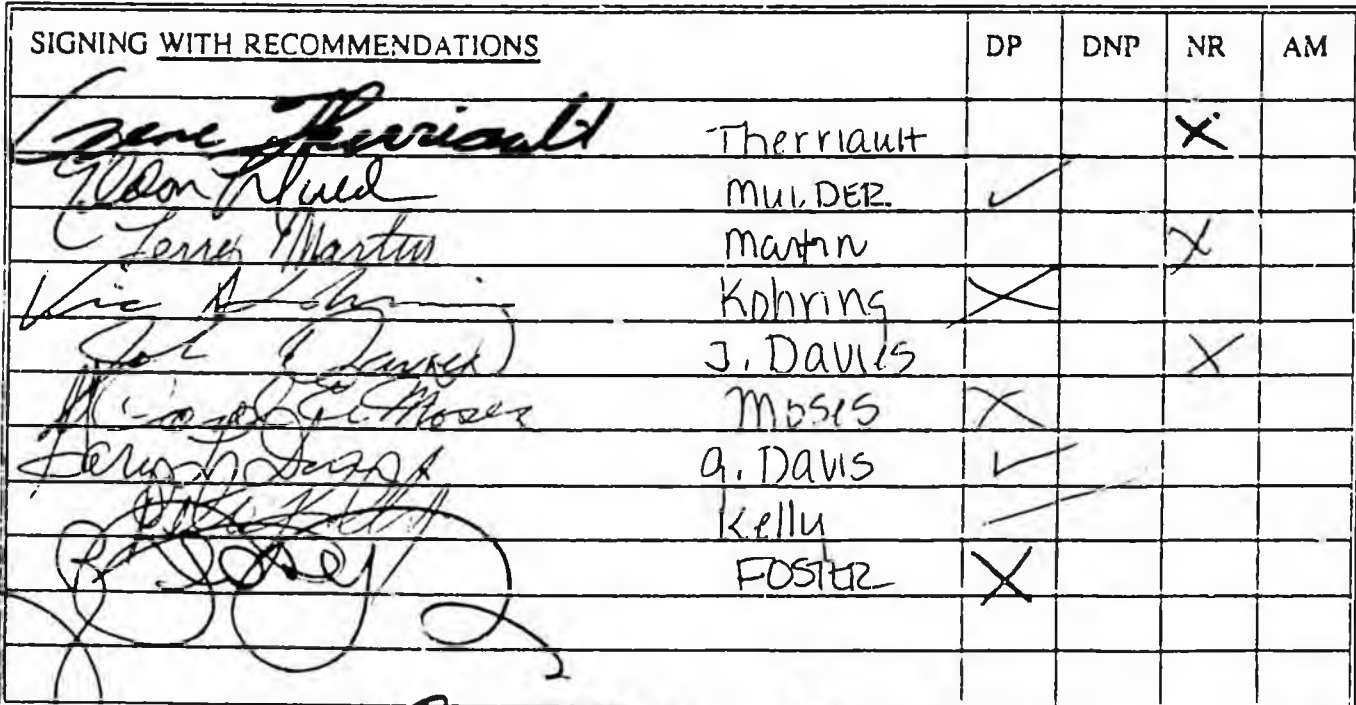 SIGNING WITH RECOMMENDATIONS DP DNP NR AM
Gene Therriault Therriault X
Eldon Mulder MULDER. ✓
Terry Martin Martin X
Vic Kohring Kohring X
John Davies J. Davies X
Moses Moses X
G. Davis ✓
Kelly
FOSTER X